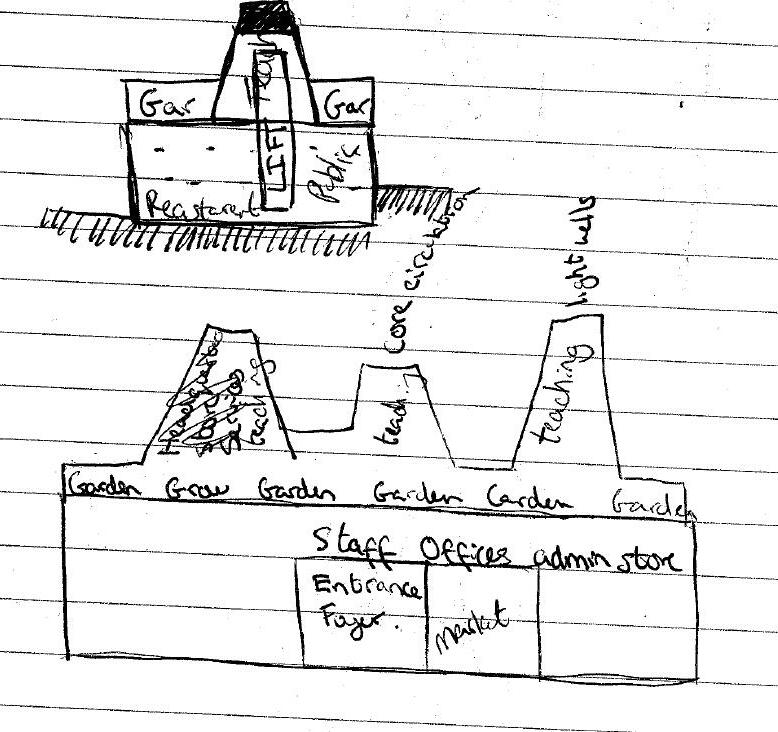 Teach
Gar
LIFT
Gar
Public
Reastarent
core circulation
light wells
teaching
teaching
teaching
Garden Grow Garden Garden Garden Garden
Staff Offices admin store
Entrance
Foyer.
market